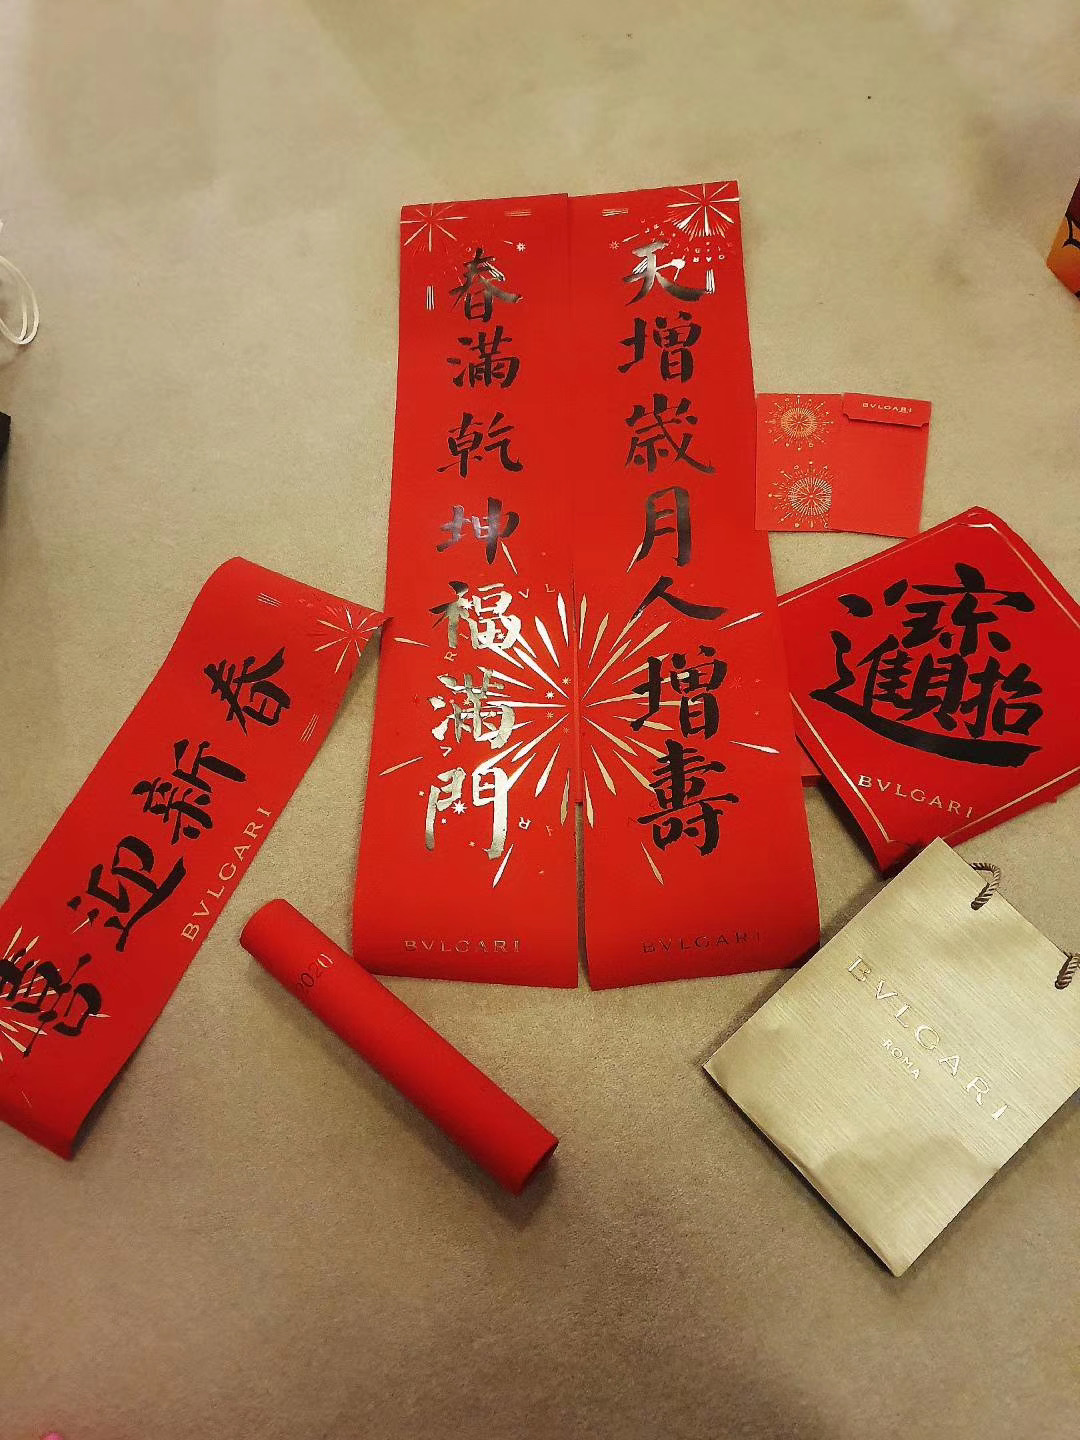 天增歲月人增壽
BVLGARI
春滿乾坤福滿門
BVLGARI
喜迎新春
BVLGARI
BVLGARI
招財進寶
BVLGARI
2020
BVLGARI
ROMA